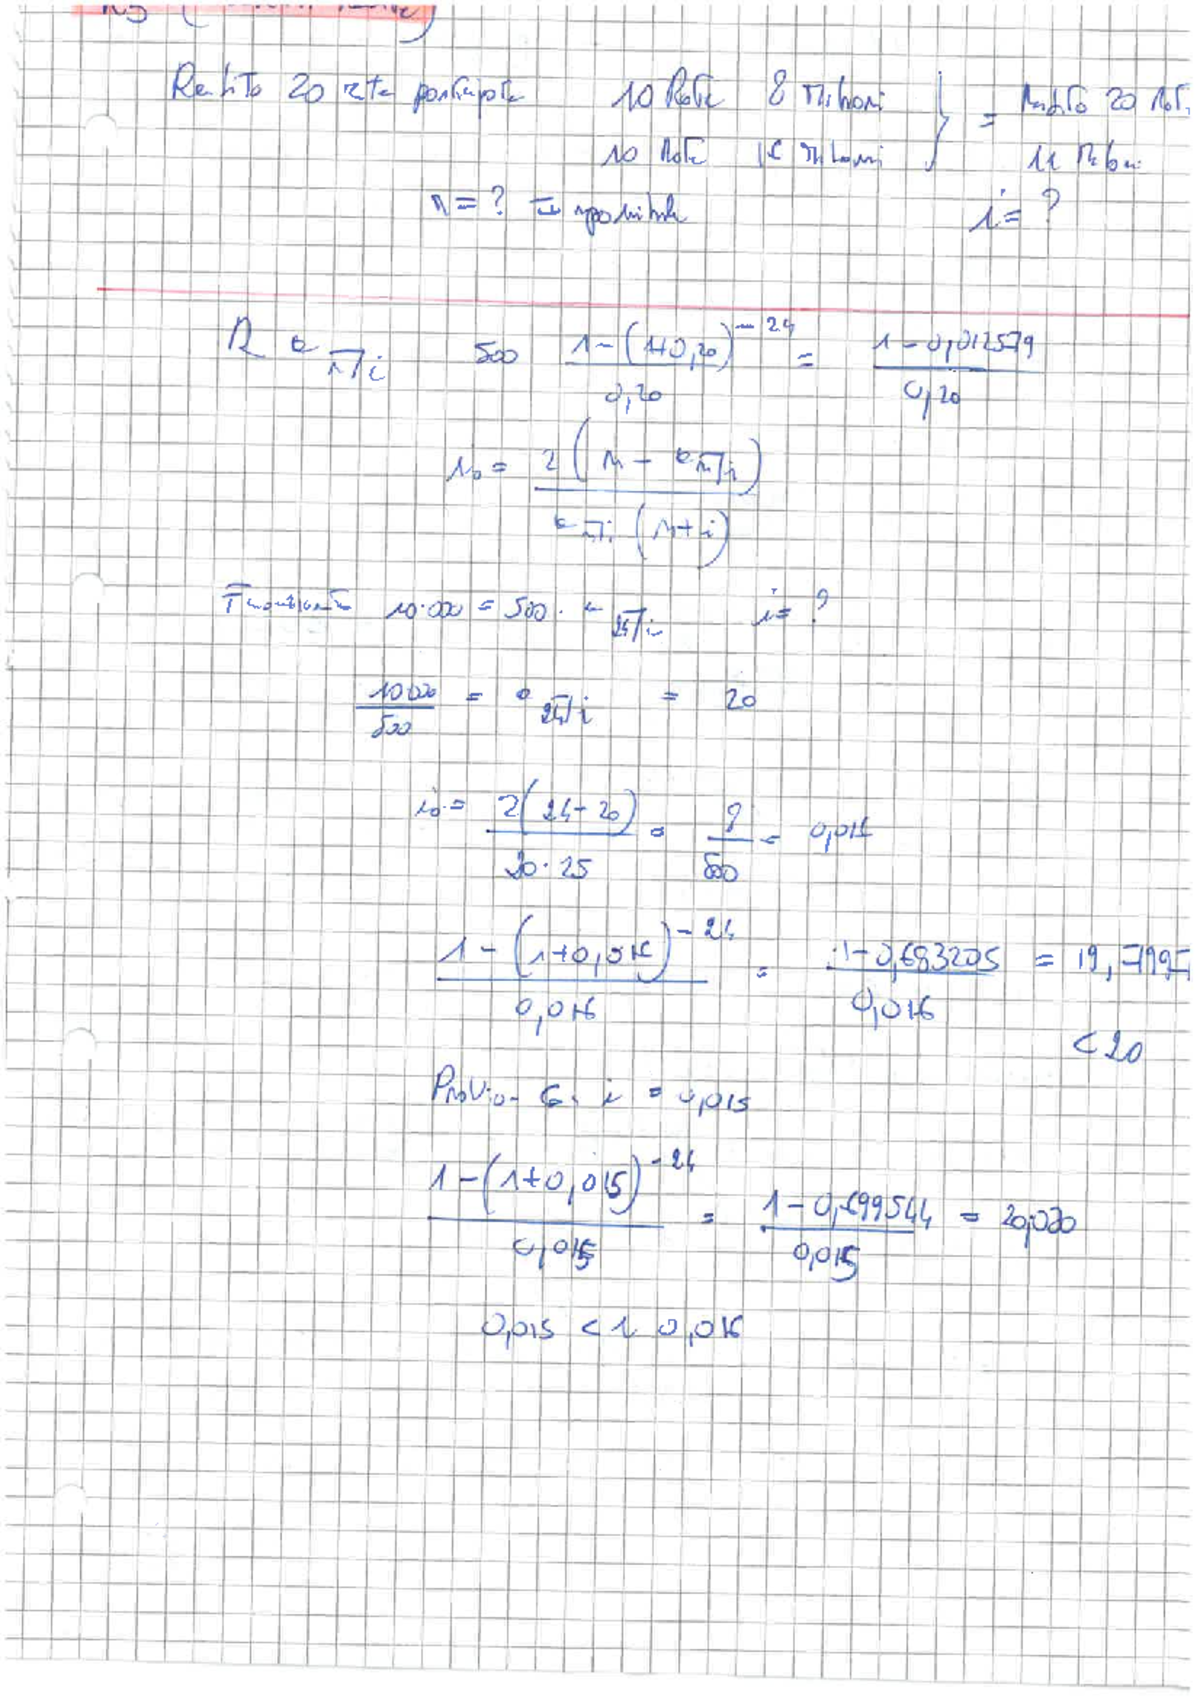 Rendita 20 rate posticipate 10 Rate 8 milioni } = Rendita 20 Rat
10 Rate 16 milioni 11 milioni
n = ? i = ?
R a n⌉i 500 1-(1+0,20)^-24 / 0,20 = 1-0,012579 / 0,20
i₀ = 2(n - a n⌉i) / a n⌉i (n+i)
10.000 = 500 · a 24⌉i i = ?
10000 / 500 = a 24⌉i = 20
i₀ = 2(24-20) / 20·25 = 8 / 500 = 0,016
1-(1+0,016)^-24 / 0,016 = 1-0,683205 / 0,016 = 19,7997
< 20
Provia- i = 0,015
1-(1+0,015)^-24 / 0,015 = 1-0,699544 / 0,015 = 20,030
0,015 < i 0,016